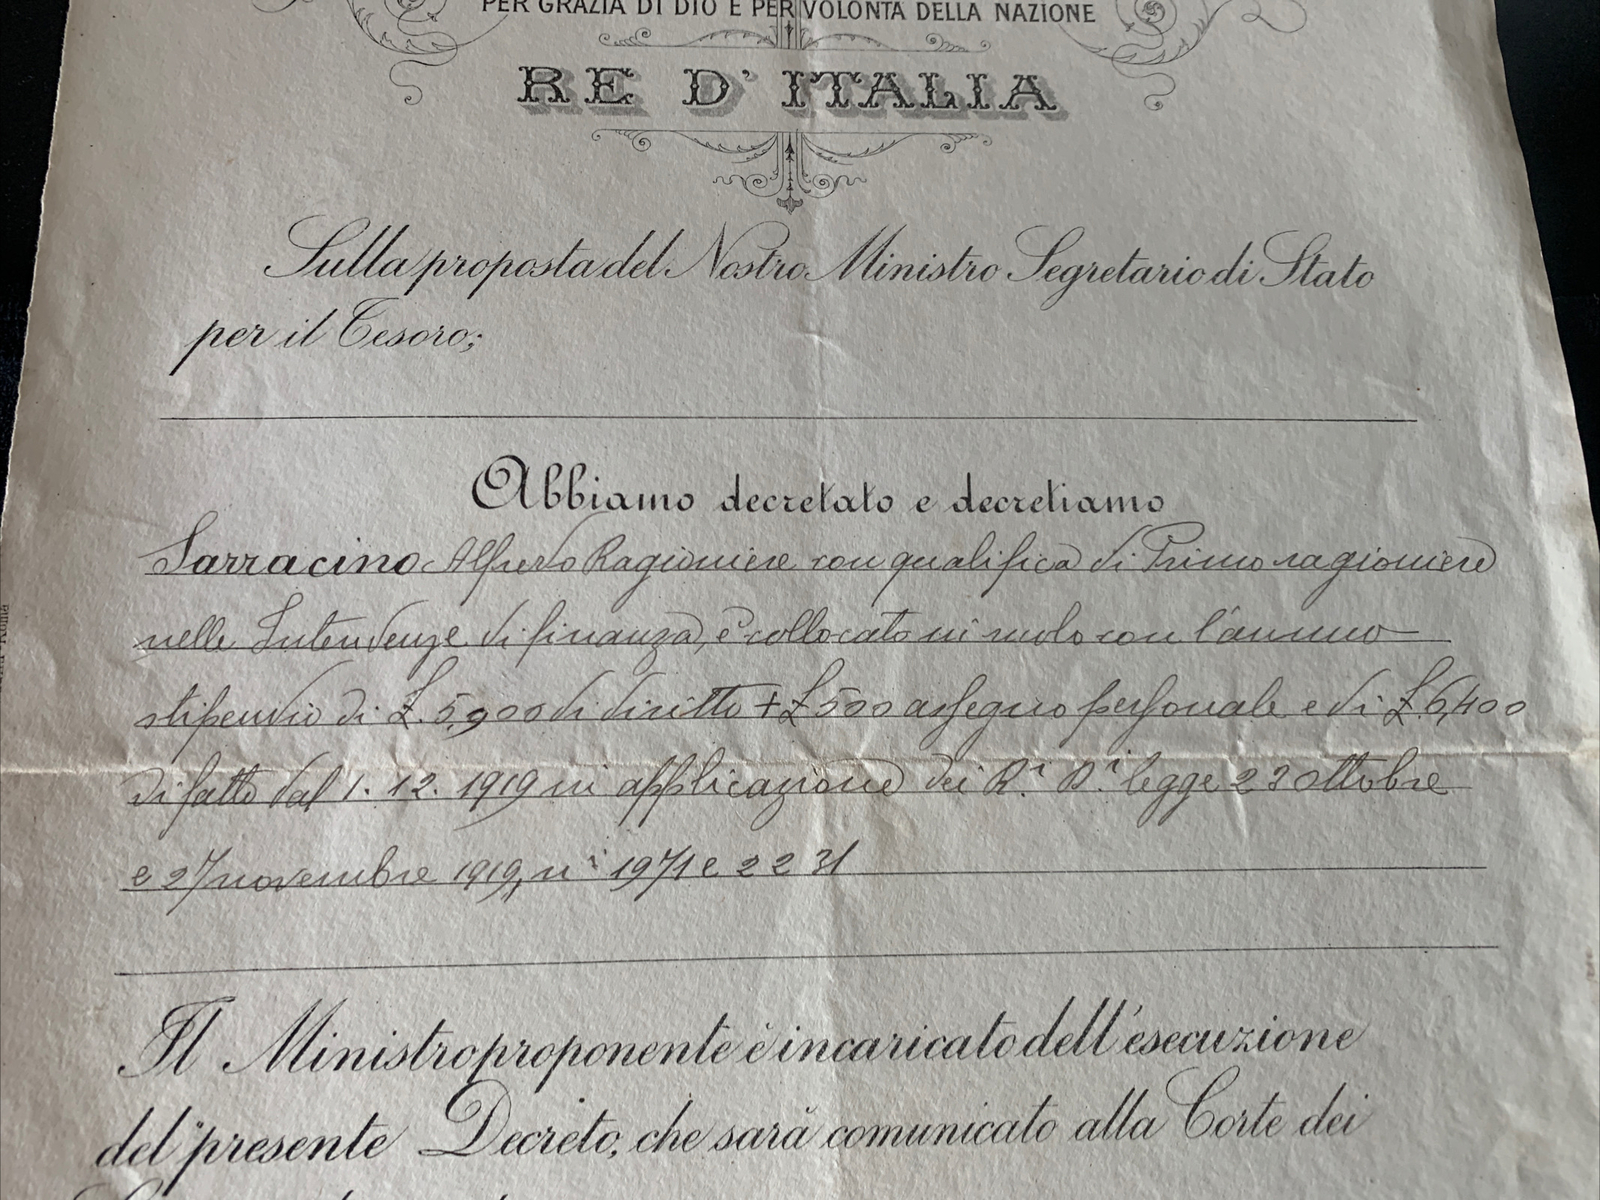 PER GRAZIA DI DIO E PER VOLONTÀ DELLA NAZIONE
RE D'ITALIA
Sulla proposta del Nostro Ministro Segretario di Stato
per il Tesoro;
Abbiamo decretato e decretiamo
Sarracino Alfredo Ragioniere con qualifica di Primo ragioniere
nelle Intendenze di finanza, è collocato in ruolo con l'annuo
stipendio di £. 5,900 di diritto + £ 500 assegno personale e di £. 6,400
di fatto dal 1. 12. 1919 in applicazione dei R.i D.i legge 23 ottobre
e 27 novembre 1919, ni 1971 e 2231
Il Ministro proponente è incaricato dell'esecuzione
del presente Decreto, che sarà comunicato alla Corte dei